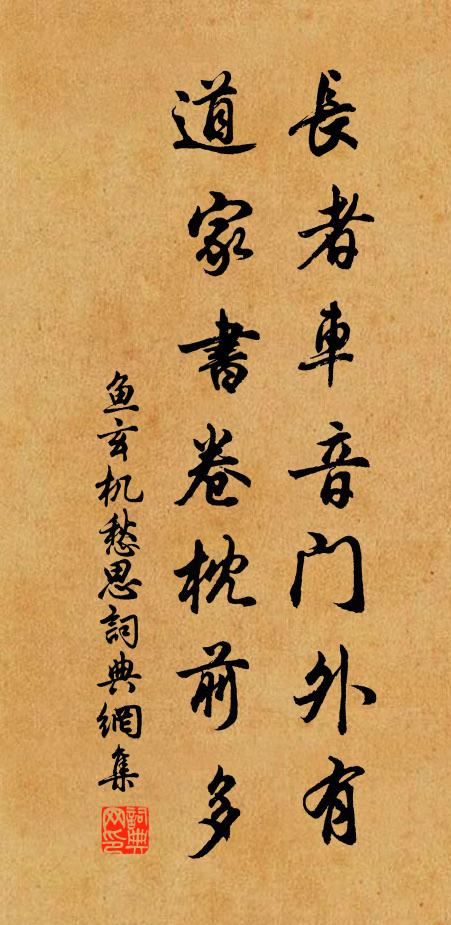 長者車音門外有
道家書卷枕前多
鱼玄机愁思詞典網集
詞典
网印